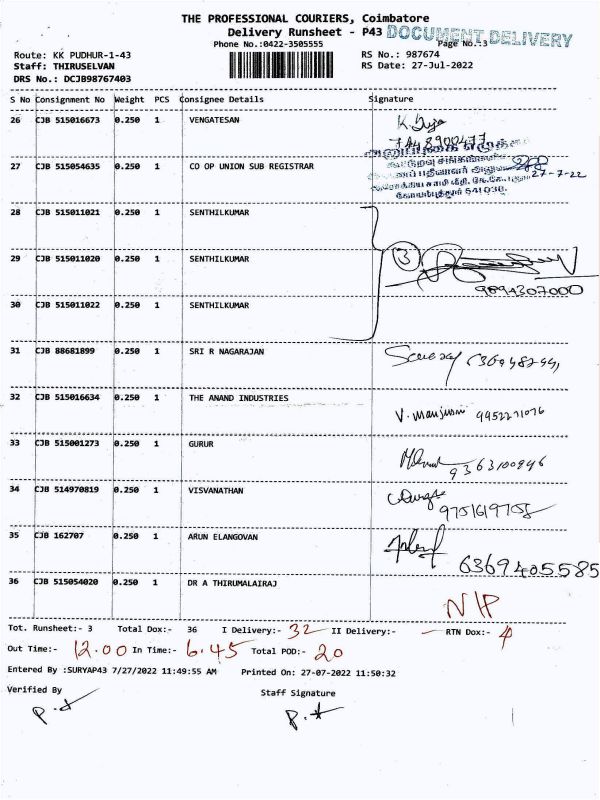 THE PROFESSIONAL COURIERS, Coimbatore
Delivery Runsheet - P43 DOCUMENT DELIVERY
Phone No.:0422-3505555 Page No.:3
Route: KK PUDHUR-1-43 RS No.: 987674
Staff: THIRUSELVAN RS Date: 27-Jul-2022
DRS No.: DCJB98767403
S No Consignment No Weight PCS Consignee Details Signature
26 CJB 515016673 0.250 1 VENGATESAN
7448900477
27 CJB 515054635 0.250 1 CO OP UNION SUB REGISTRAR
27-7-22
641038.
28 CJB 515011021 0.250 1 SENTHILKUMAR
29 CJB 515011020 0.250 1 SENTHILKUMAR 3
9894307000
30 CJB 515011022 0.250 1 SENTHILKUMAR
31 CJB 88681899 0.250 1 SRI R NAGARAJAN
32 CJB 515016634 0.250 1 THE ANAND INDUSTRIES
V. Manjusri 9952271076
33 CJB 515001273 0.250 1 GURUR
9363100946
34 CJB 514970819 0.250 1 VISVANATHAN
9751619758
35 CJB 162707 0.250 1 ARUN ELANGOVAN
6369405585
36 CJB 515054020 0.250 1 DR A THIRUMALAIRAJ
N/P
Tot. Runsheet:- 3 Total Dox:- 36 I Delivery:- 32 II Delivery:- — RTN Dox:- 4
Out Time:- 12.00 In Time:- 6.45 Total POD:- 20
Entered By :SURYAP43 7/27/2022 11:49:55 AM Printed On: 27-07-2022 11:50:32
Verified By Staff Signature